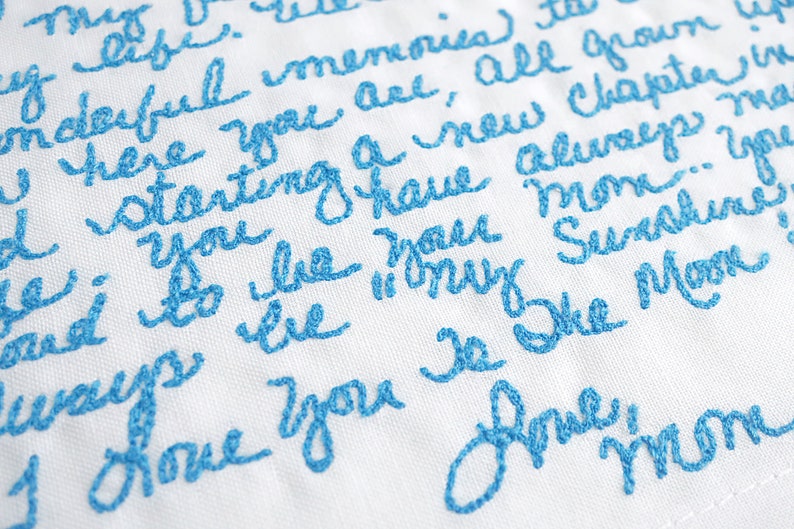 my
my life. We
wonderful memories to
here you are, all grown up
starting a new chapter in
you have always ma
de. to be your mom.. You
proud to be "My Sunshine"
always be
I Love You To The Moon
Love, Mom